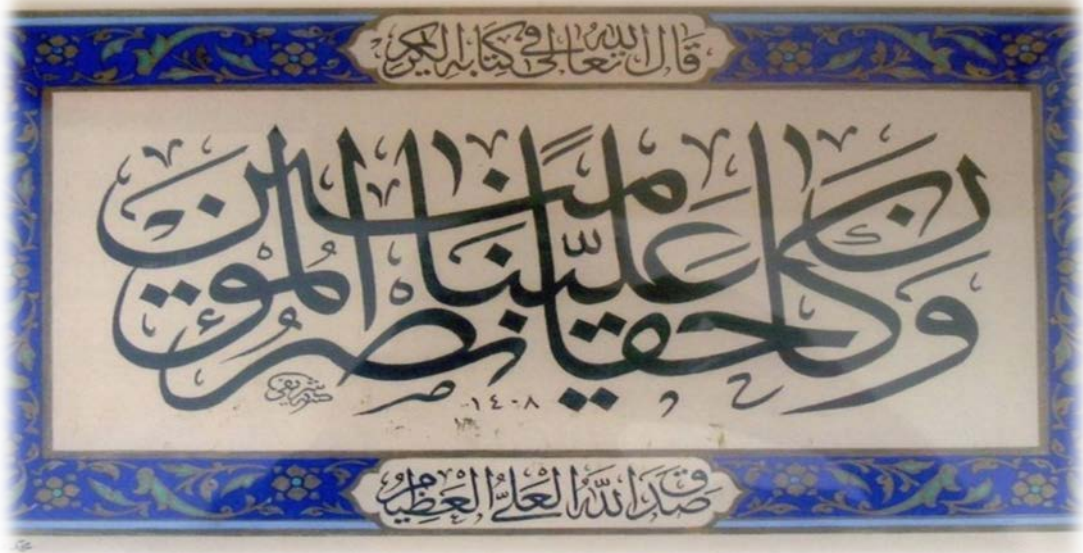 قَالَ اللهُ تَعَالَى فِي كِتَابِهِ الْكَرِيمِ
وَكَانَ حَقًّا عَلَيْنَا نَصْرُ الْمُؤْمِنِينَ
شريفي
١٤٠٨
صَدَقَ اللهُ الْعَلِيُّ الْعَظِيمُ